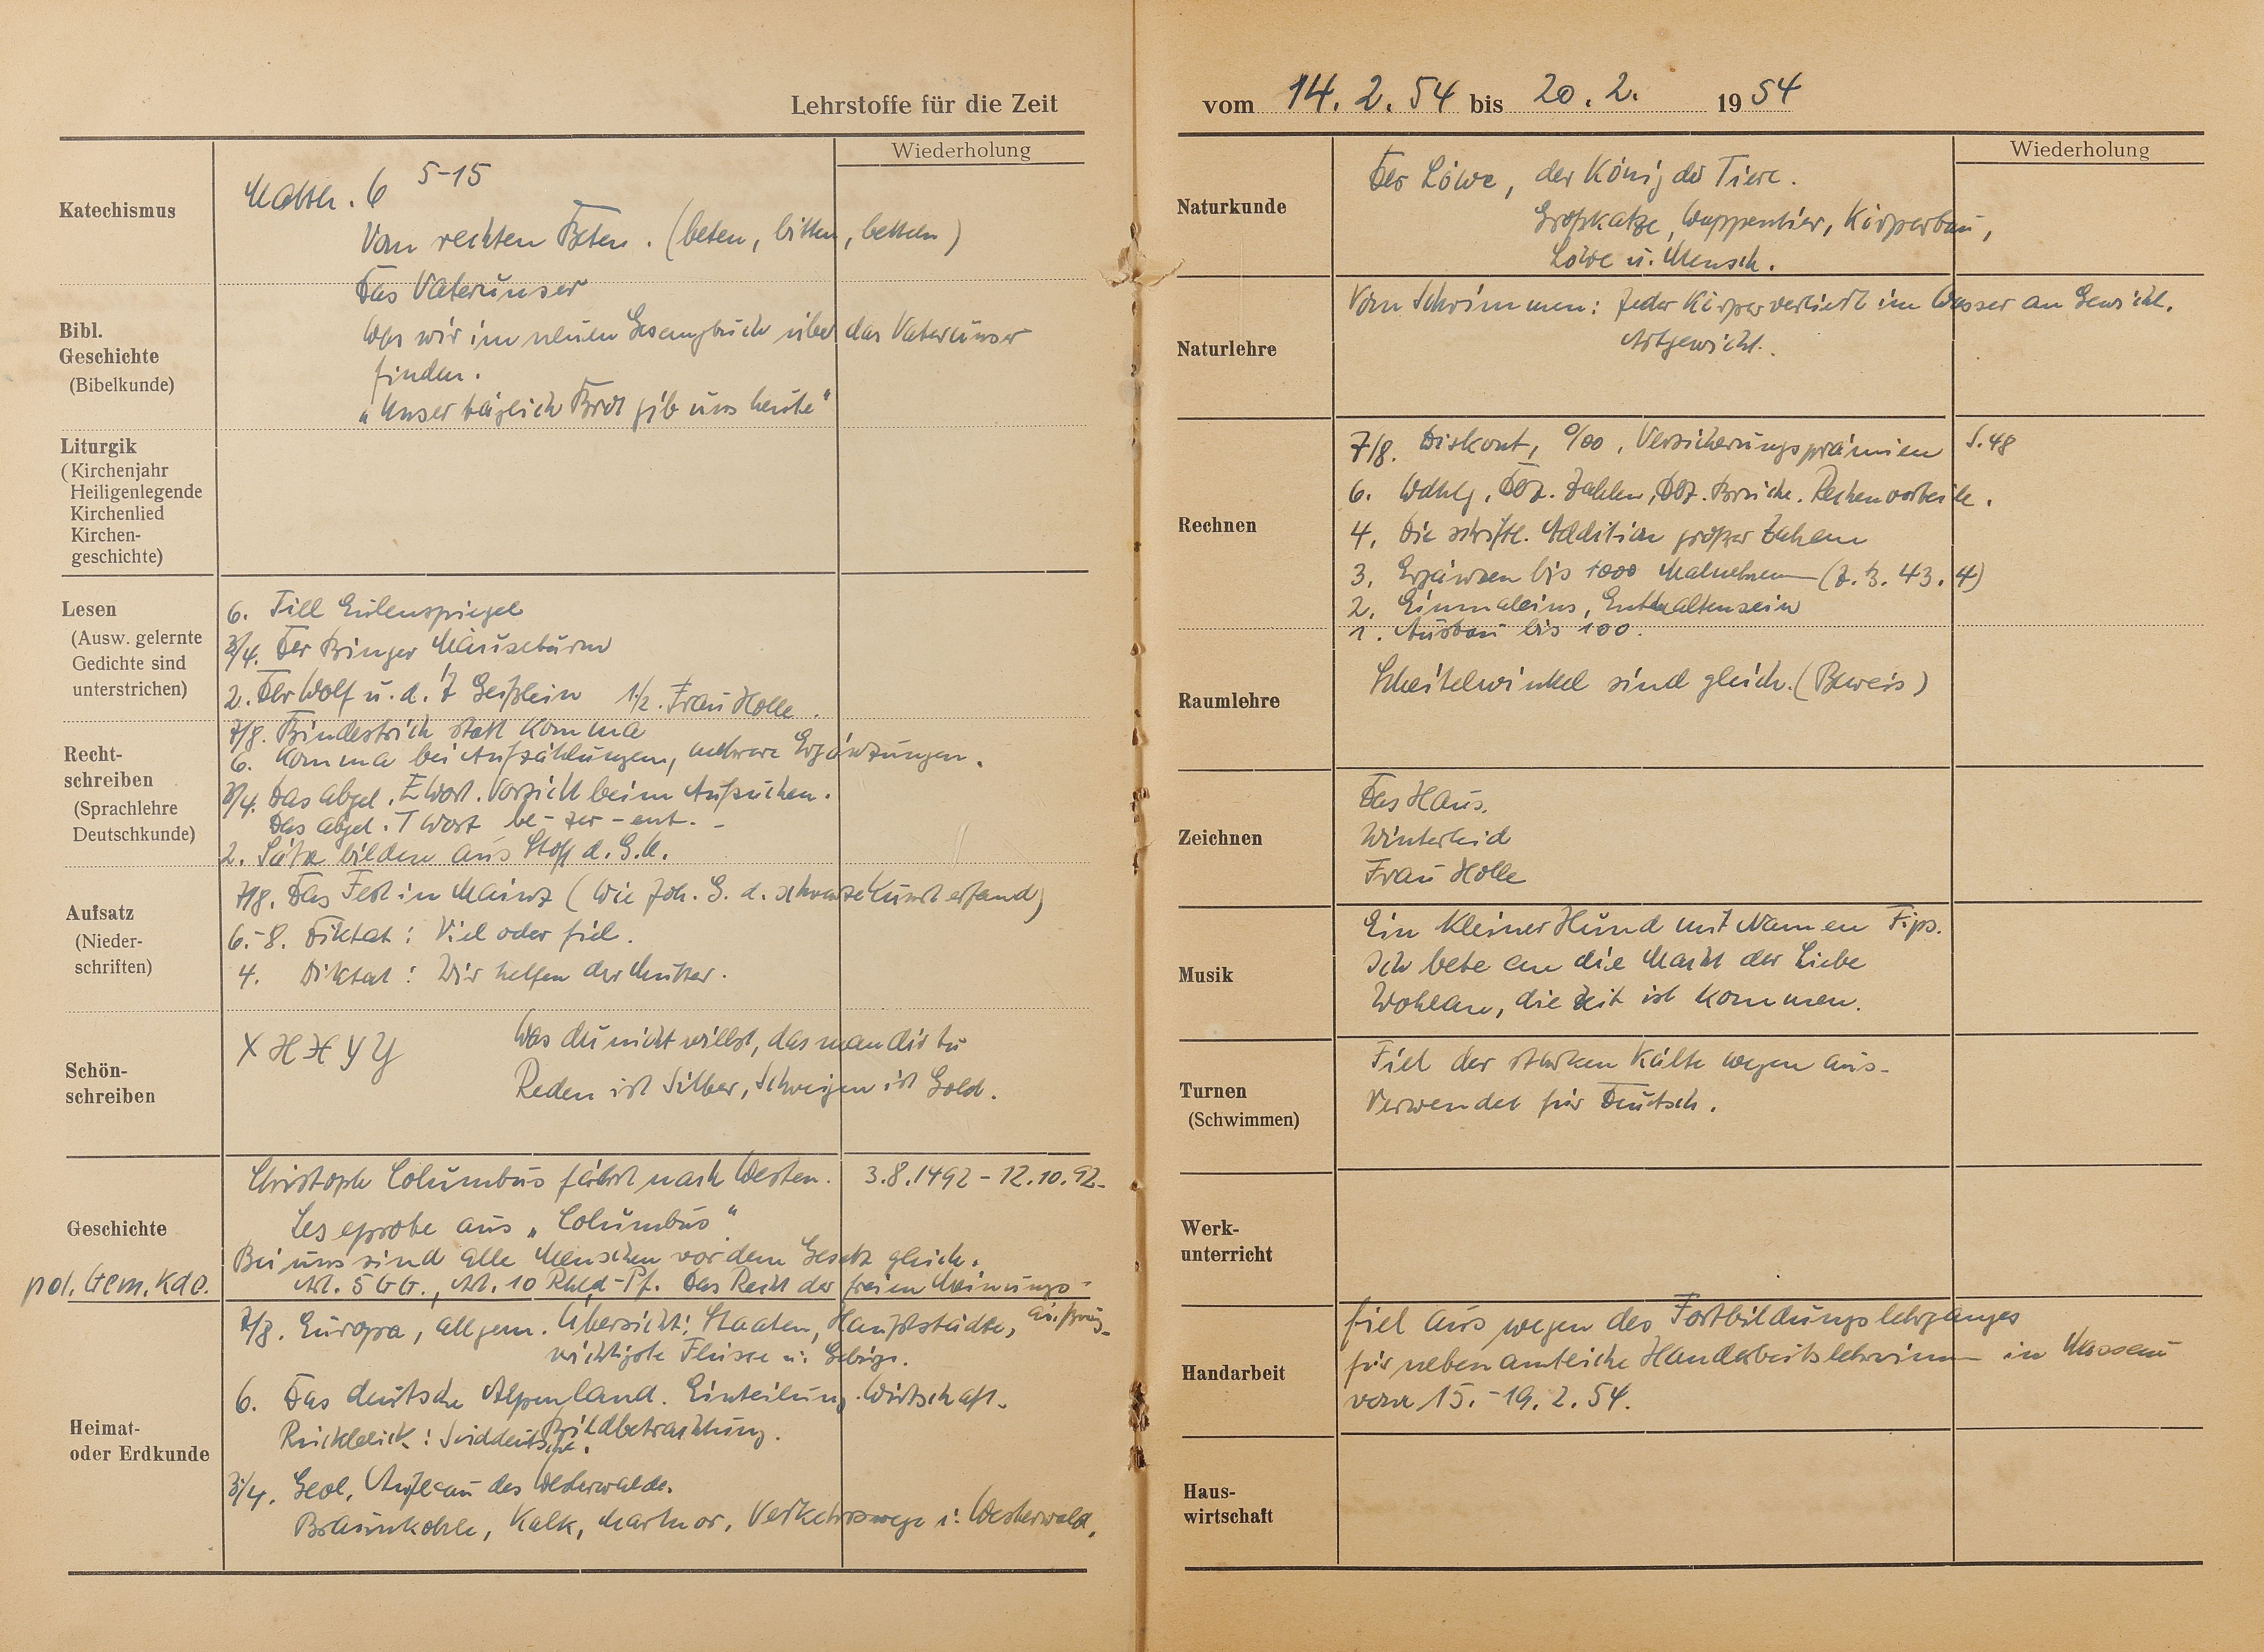 Lehrstoffe für die Zeit
Wiederholung
Katechismus
Matth. 6 5-15
Vom rechten Beten. (beten, bitten, betteln)
Das Vaterunser
Bibl.
Geschichte
(Bibelkunde)
Was wir im neuen Gesangbuch über das Vaterunser
finden.
„Unser täglich Brot gib uns heute"
Liturgik
(Kirchenjahr
Heiligenlegende
Kirchenlied
Kirchen-
geschichte)
Lesen
(Ausw. gelernte
Gedichte sind
unterstrichen)
6. Till Eulenspiegel
3/4. Der Binger Mäuseturm
2. Der Wolf u. d. 7 Geißlein 1./2. Frau Holle.
Recht-
schreiben
(Sprachlehre
Deutschkunde)
7/8. Bindestrich statt Komma
6. Komma bei Aufzählungen, mehrere Ergänzungen.
3/4. Das abgel. E Wort. Vorsicht beim Aufsuchen.
Das abgel. T Wort be- zer- ent- -
2. Sätze bilden aus Stoff d. G.U.
Aufsatz
(Nieder-
schriften)
7/8. Das Fest in Mainz (Wie Joh. G. d. schwarze Kunst erfand)
6.-8. Diktat: Viel oder fiel.
4. Diktat: Wir helfen der Mutter.
Schön-
schreiben
X H H Y Y
Was du nicht willst, das man dir tu
Reden ist Silber, Schweigen ist Gold.
Geschichte
Christoph Columbus fährt nach Westen. 3.8.1492 - 12.10.92.
Leseprobe aus „Columbus"
Bei uns sind alle Menschen vor dem Gesetz gleich.
pol. Gem. Kde.
Art. 5 GG., Art. 10 Rhld-Pf. Das Recht der freien Meinungs-
äußrug-
Heimat-
oder Erdkunde
7/8. Europa, allgem. Übersicht: Staaten, Hauptstädte,
wichtigste Flüsse u. Gebirge.
6. Das deutsche Alpenland. Einteilung. Wirtschaft.
Bildbetrachtung.
Rückblick: Süddeutschl.
3/4. Geol. Aufbau des Westerwaldes.
Braunkohle, Kalk, Marmor, Verkehrswege i. Westerwald.
vom 14. 2. 54 bis 20. 2. 1954
Wiederholung
Naturkunde
Der Löwe, der König der Tiere.
Großkatze, Wappentier, Körperbau,
Löwe u. Mensch.
Naturlehre
Vom Schwimmen: Jeder Körper verliert im Wasser an Gewicht.
Artgewicht.
Rechnen
7/8. Diskont, ‰, Versicherungsprämien S.48
6. Wdhlg. Dez. Zahlen, Dez. Brüche. Rechenvorteile.
4. Die schriftl. Addition großer Zahlen
3. Ergänzen bis 1000 Malnehmen (z.B. 43.4)
2. Einmaleins, Enthaltensein
1. Ausbau bis 100.
Raumlehre
Scheitelwinkel sind gleich. (Beweis)
Zeichnen
Das Haus.
Winterkleid
Frau Holle
Musik
Ein kleiner Hund mit Namen Fips.
Ich bete an die Macht der Liebe
Wohlan, die Zeit ist kommen.
Turnen
(Schwimmen)
Fiel der starken Kälte wegen aus.
Verwendet für Deutsch.
Werk-
unterricht
Handarbeit
fiel aus wegen des Fortbildungslehrganges
für nebenamtliche Handarbeitslehrerinnen in Nassau
vom 15.-19.2.54.
Haus-
wirtschaft